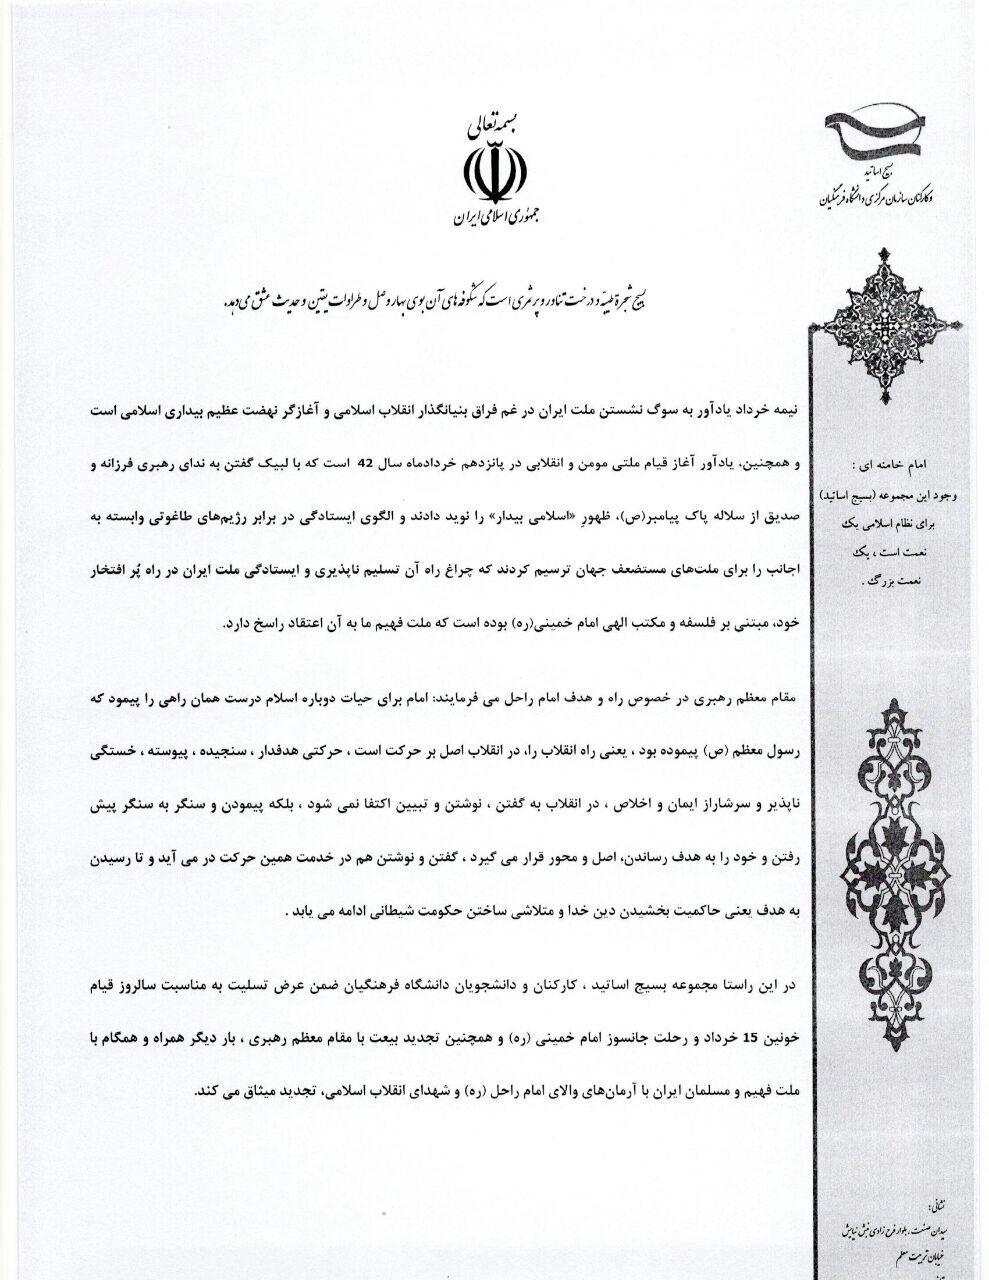 بسمه تعالی
جمهوری اسلامی ایران
بسیج اساتید
و کارکنان سازمان مرکزی دانشگاه فرهنگیان
بسیج شجرهٔ طیبه و درخت تناور و پر ثمری است که شکوفه های آن بوی بهار وصل و طراوات یقین و حدیث عشق می دهد.
نیمه خرداد یادآور به سوگ نشستن ملت ایران در غم فراق بنیانگذار انقلاب اسلامی و آغازگر نهضت عظیم بیداری اسلامی است
و همچنین، یادآور آغاز قیام ملتی مومن و انقلابی در پانزدهم خردادماه سال 42 است که با لبیک گفتن به ندای رهبری فرزانه و
صدیق از سلاله پاک پیامبر(ص)، ظهورِ «اسلامی بیدار» را نوید دادند و الگوی ایستادگی در برابر رژیم‌های طاغوتی وابسته به
اجانب را برای ملت‌های مستضعف جهان ترسیم کردند که چراغ راه آن تسلیم ناپذیری و ایستادگی ملت ایران در راه پُر افتخار
خود، مبتنی بر فلسفه و مکتب الهی امام خمینی(ره) بوده است که ملت فهیم ما به آن اعتقاد راسخ دارد.
مقام معظم رهبری در خصوص راه و هدف امام راحل می فرمایند: امام برای حیات دوباره اسلام درست همان راهی را پیمود که
رسول معظم (ص) پیموده بود ، یعنی راه انقلاب را، در انقلاب اصل بر حرکت است ، حرکتی هدفدار ، سنجیده ، پیوسته ، خستگی
ناپذیر و سرشاراز ایمان و اخلاص ، در انقلاب به گفتن ، نوشتن و تبیین اکتفا نمی شود ، بلکه پیمودن و سنگر به سنگر پیش
رفتن و خود را به هدف رساندن، اصل و محور قرار می گیرد ، گفتن و نوشتن هم در خدمت همین حرکت در می آید و تا رسیدن
به هدف یعنی حاکمیت بخشیدن دین خدا و متلاشی ساختن حکومت شیطانی ادامه می یابد .
در این راستا مجموعه بسیج اساتید ، کارکنان و دانشجویان دانشگاه فرهنگیان ضمن عرض تسلیت به مناسبت سالروز قیام
خونین 15 خرداد و رحلت جانسوز امام خمینی (ره) و همچنین تجدید بیعت با مقام معظم رهبری ، بار دیگر همراه و همگام با
ملت فهیم و مسلمان ایران با آرمان‌های والای امام راحل (ره) و شهدای انقلاب اسلامی، تجدید میثاق می کند.
امام خامنه ای :
وجود این مجموعه (بسیج اساتید)
برای نظام اسلامی یک
نعمت است ، یک
نعمت بزرگ .
نشانی:
میدان صنعت، بلوار فرح زادی نبش نیایش
خیابان تربیت معلم